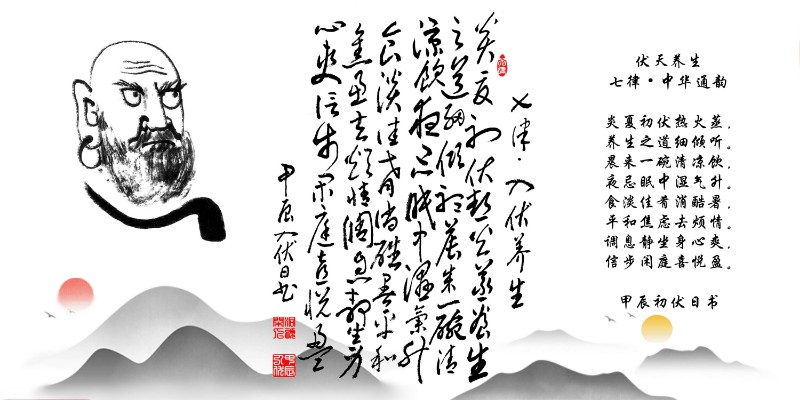 七律·入伏养生
炎夏初伏热火蒸养生
之道细倾听晨来一碗清
凉饮夜忌眠中湿氣升
食淡佳肴消酷暑平和
焦虑去烦情调息静坐身
心爽信步闲庭喜悦盈
甲辰入伏日书
伏天养生
七律·中华通韵
炎夏初伏热火蒸，
养生之道细倾听。
晨来一碗清凉饮，
夜忌眠中湿气升。
食淡佳肴消酷暑，
平和焦虑去烦情。
调息静坐身心爽，
信步闲庭喜悦盈。
甲辰初伏日书